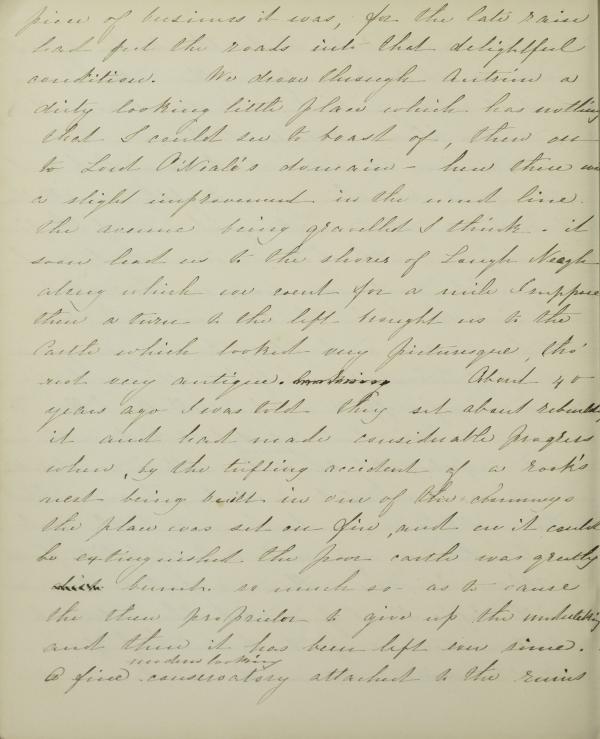 piece of business it was, for the late rains
had put the roads into that delightful
condition. We drove through Antrim a
dirty looking little place which has nothing
that I could see to boast of, then on
to Lord O'Neile's domain - here there was
a slight improvement in the mud line.
the avenue being gravelled I think - it
soon lead us to the shores of Lough Neagh
along which we went for a mile I suppose
then a turn to the left brought us to the
Castle which looked very picturesque, tho'
not very antique. looking About 40
years ago I was told they set about rebuilding
it and had made considerable progress
when, by the trifling accident of a rook's
nest being built in one of the chimneys
the place was set on fire, and ere it could
be extinguished the poor castle was greatly
burnt so much so as to cause
the then proprietor to give up the undertaking
and there it has been left ever since.
modern looking
A fine conservatory attached to the ruins